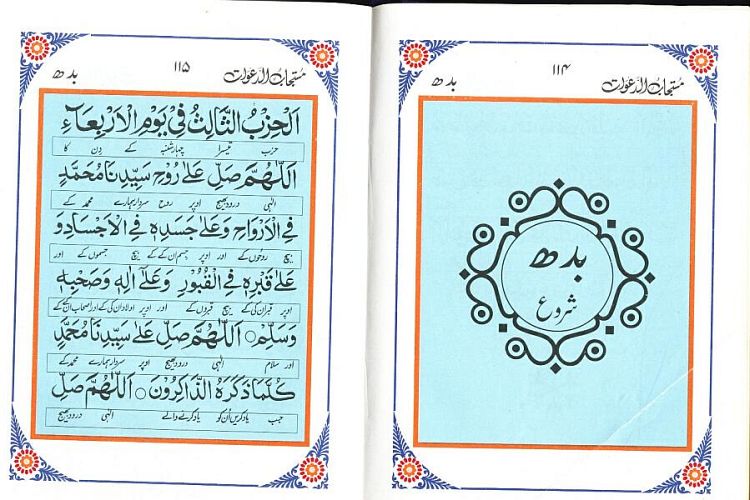 مستجاب الدعوات ۱۱۴ بدھ
بدھ
شروع
مستجاب الدعوات ۱۱۵ بدھ
اَلْحِزْبُ الثَّالِثُ فِيْ يَوْمِ الْاَرْبِعَآءِ
حزب تیسرا چہارشنبہ کے دن کا
اَللّٰهُمَّ صَلِّ عَلٰى رُوْحِ سَيِّدِنَا مُحَمَّدٍ
الٰہی درود بھیج اوپر روح سردار ہمارے محمد کے
فِي الْاَرْوَاحِ وَعَلٰى جَسَدِهٖ فِي الْاَجْسَادِ وَ
بیچ روحوں کے اور اوپر جسم ان کے کے بیچ جسموں کے اور
عَلٰى قَبْرِهٖ فِي الْقُبُوْرِ وَعَلٰٓى اٰلِهٖ وَصَحْبِهٖ
اوپر قبر ان کی کے بیچ قبروں کے اور اوپر اولاد ان کی کے اور اصحاب ان کے کے
وَسَلِّمْ ○ اَللّٰهُمَّ صَلِّ عَلٰى سَيِّدِنَا مُحَمَّدٍ
اور سلام الٰہی درود بھیج اوپر سردار ہمارے محمد کے
كُلَّمَا ذَكَرَهُ الذَّاكِرُوْنَ ○ اَللّٰهُمَّ صَلِّ
جب یاد کریں اُن کو یاد کرنے والے الٰہی درود بھیج